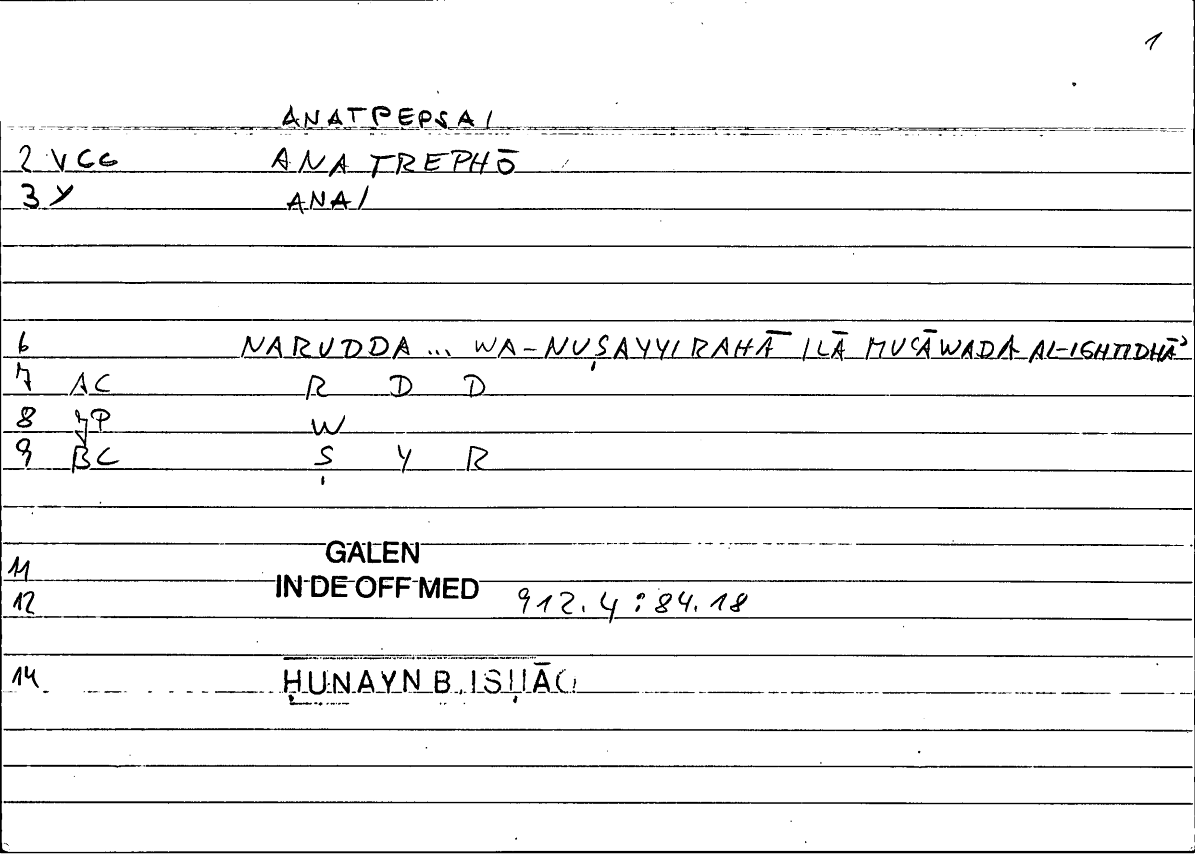 1
ANATPEPSAI
2 VCG ANATREPHŌ
3 Y ANA/
6 NARUDDA ... WA-NUṢAYYIRAHĀ ILĀ MUʿĀWADA AL-IGHTIDHĀʾ
7 AC R D D
8 JP W
9 BC Ṣ Y R
11 GALEN
12 IN DE OFF MED 912.4 : 84.18
14 ḤUNAYN B. ISḤĀQ